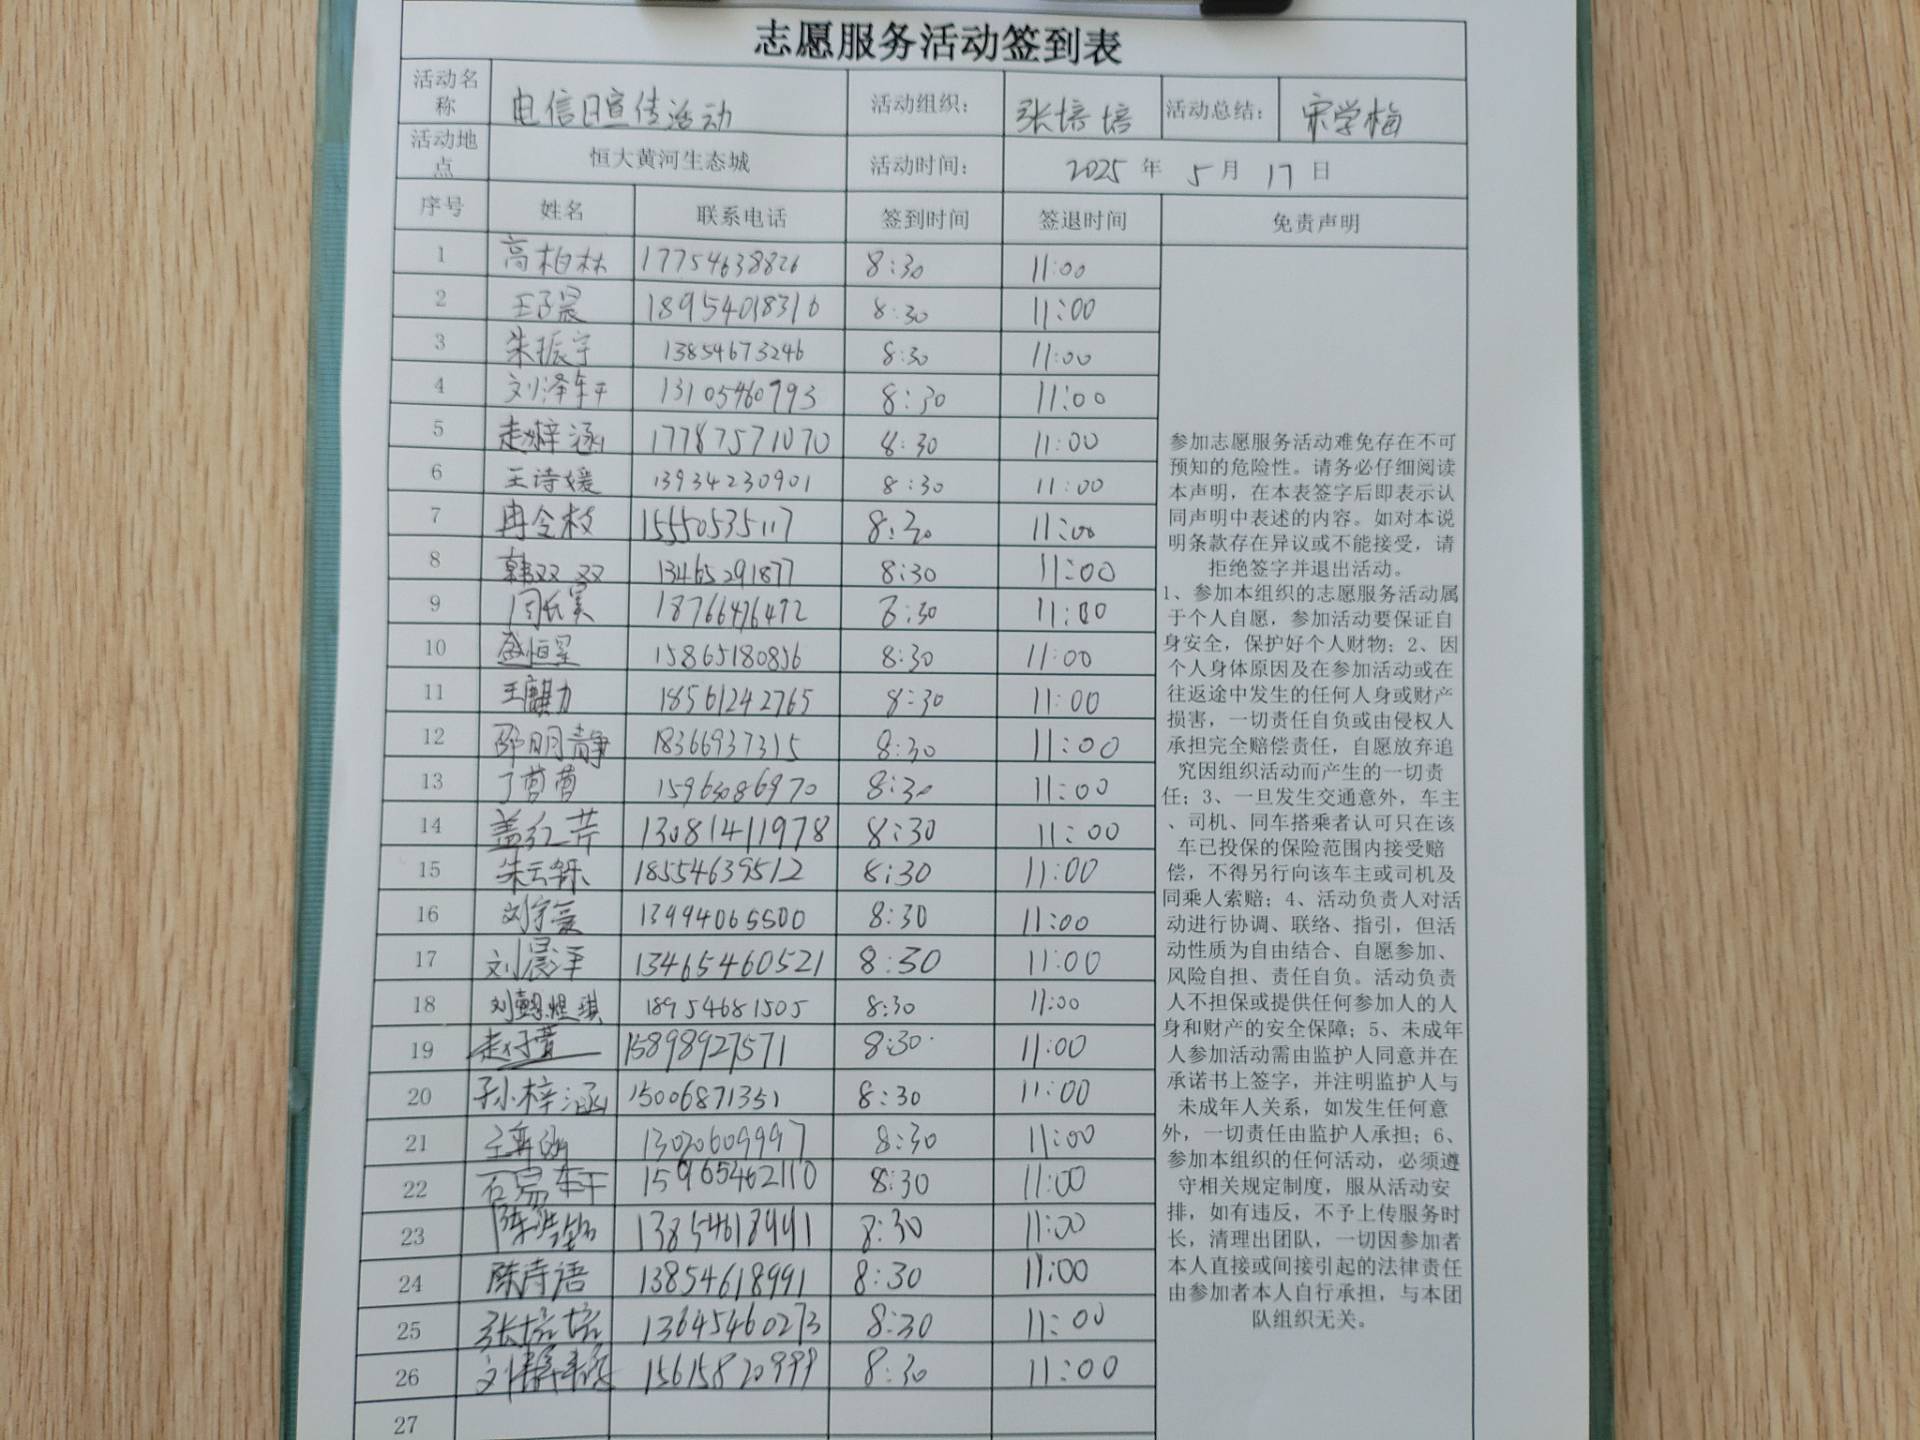 志愿服务活动签到表
活动名称 电信日宣传活动 活动组织： 张培培 活动总结： 宋学梅
活动地点 恒大黄河生态城 活动时间： 2025 年 5 月 17 日
序号 姓名 联系电话 签到时间 签退时间 免责声明
1 高柏林 17754638826 8:30 11:00
2 王子晨 18954018316 8:30 11:00
3 朱振宇 13854673246 8:30 11:00
4 刘泽轩 13105460793 8:30 11:00
5 赵梓涵 17787571070 8:30 11:00
6 王诗媛 13934230901 8:30 11:00
7 冉令枝 15550535117 8:30 11:00
8 韩双双 13465291877 8:30 11:00
9 18766476472 8:30 11:00
10 盛恒星 15865180856 8:30 11:00
11 王麒力 18561242765 8:30 11:00
12 邵明静 18366937315 8:30 11:00
13 丁曹曹 15963086970 8:30 11:00
14 盖红芹 13081411978 8:30 11:00
15 朱云铄 18554639512 8:30 11:00
16 13994065500 8:30 11:00
17 刘晨平 13465460521 8:30 11:00
18 18954681505 8:30 11:00
19 15898927571 8:30 11:00
20 孙梓涵 15006871351 8:30 11:00
21 13020609997 8:30 11:00
22 石易轩 15965462110 8:30 11:00
23 13854618991 8:30 11:00
24 陈诗语 13854618991 8:30 11:00
25 张培培 13645460273 8:30 11:00
26 15615820999 8:30 11:00
27
参加志愿服务活动难免存在不可
预知的危险性。请务必仔细阅读
本声明，在本表签字后即表示认
同声明中表述的内容。如对本说
明条款存在异议或不能接受，请
拒绝签字并退出活动。
1、参加本组织的志愿服务活动属
于个人自愿，参加活动要保证自
身安全，保护好个人财物；2、因
个人身体原因及在参加活动或在
往返途中发生的任何人身或财产
损害，一切责任自负或由侵权人
承担完全赔偿责任，自愿放弃追
究因组织活动而产生的一切责
任；3、一旦发生交通意外，车主
、司机、同车搭乘者认可只在该
车已投保的保险范围内接受赔
偿，不得另行向该车主或司机及
同乘人索赔；4、活动负责人对活
动进行协调、联络、指引，但活
动性质为自由结合、自愿参加、
风险自担、责任自负。活动负责
人不担保或提供任何参加人的人
身和财产的安全保障；5、未成年
人参加活动需由监护人同意并在
承诺书上签字，并注明监护人与
未成年人关系，如发生任何意
外，一切责任由监护人承担；6、
参加本组织的任何活动，必须遵
守相关规定制度，服从活动安
排，如有违反，不予上传服务时
长，清理出团队，一切因参加者
本人直接或间接引起的法律责任
由参加者本人自行承担，与本团
队组织无关。